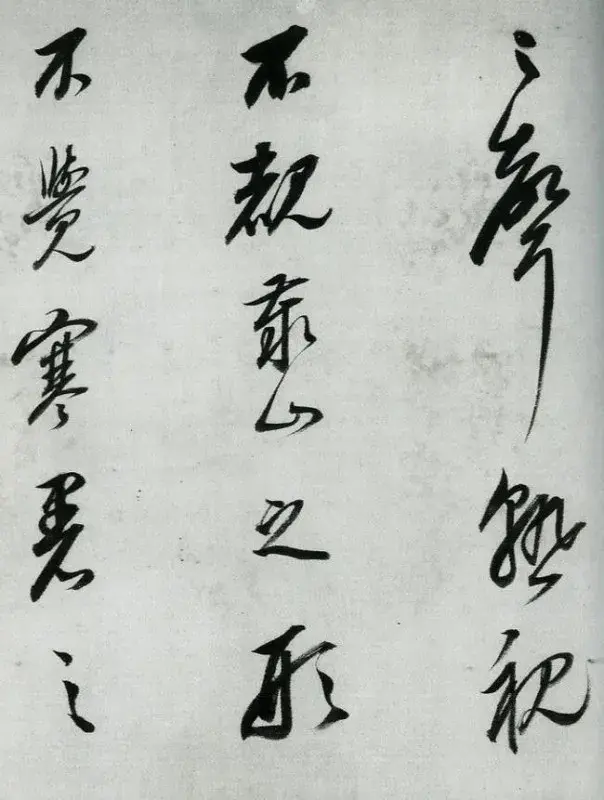 之聲熟視
不覩泰山之形
不覺寒暑之